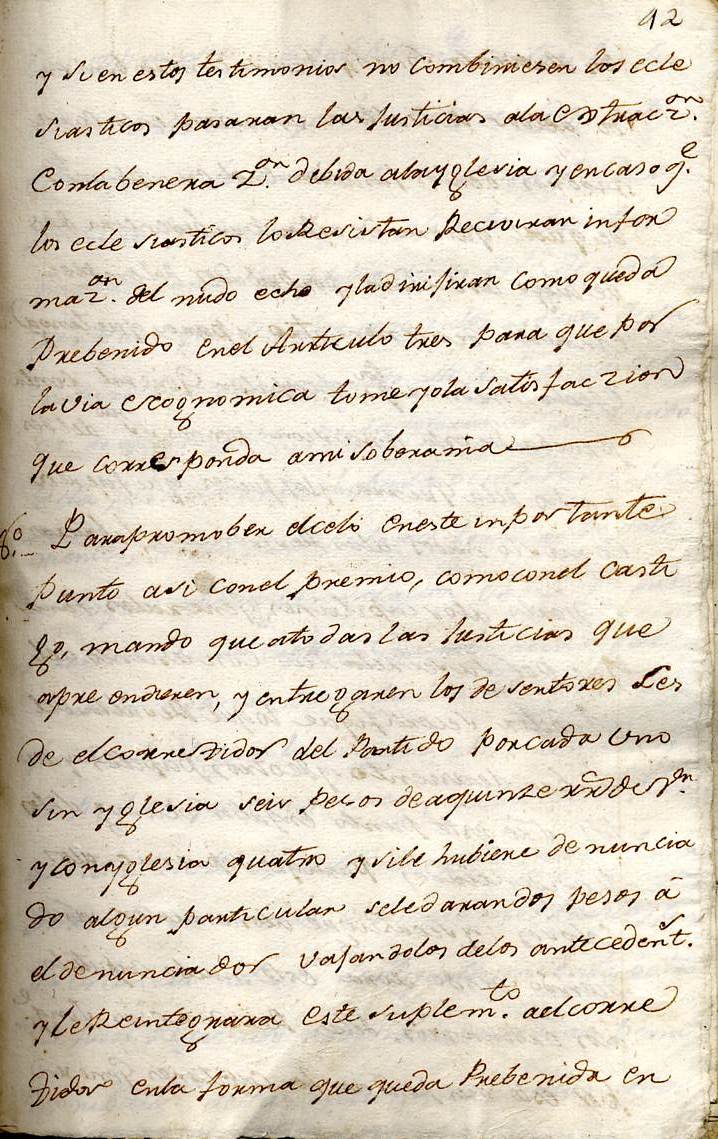 42
y si en estos testimonios no combiniesen los ecle
siasticos pasaran las Justicias ala extracz.on
Conla benera z.on debida alayglesia y encaso q.e
los ecle siasticos lo Resistan Reciviran infor
maz.on del nudo echo y la dirijiran como queda
Prebenido enel Articulo tres para que por
la via ecognomica tome yo la satisfaczion
que corresponda ami soberania
8.o Para promober elcelo eneste inportante
punto asi conel premio, como conel casti
go, mando que atodas las Justicias que
apreendieren, y entregaren los desertores Les
de elcorrexidor del Partido por cada uno
sin yglesia seis pesos de aquinze rr.s de v.on
y con yglesia quatro y si le hubiere denuncia
do algun particular seledaran dos pesos á
el denunciador vajandolos delos antecedent.s
y le Reintegrara este suplem.to ael corre
xidor enla forma que queda Prebenida en